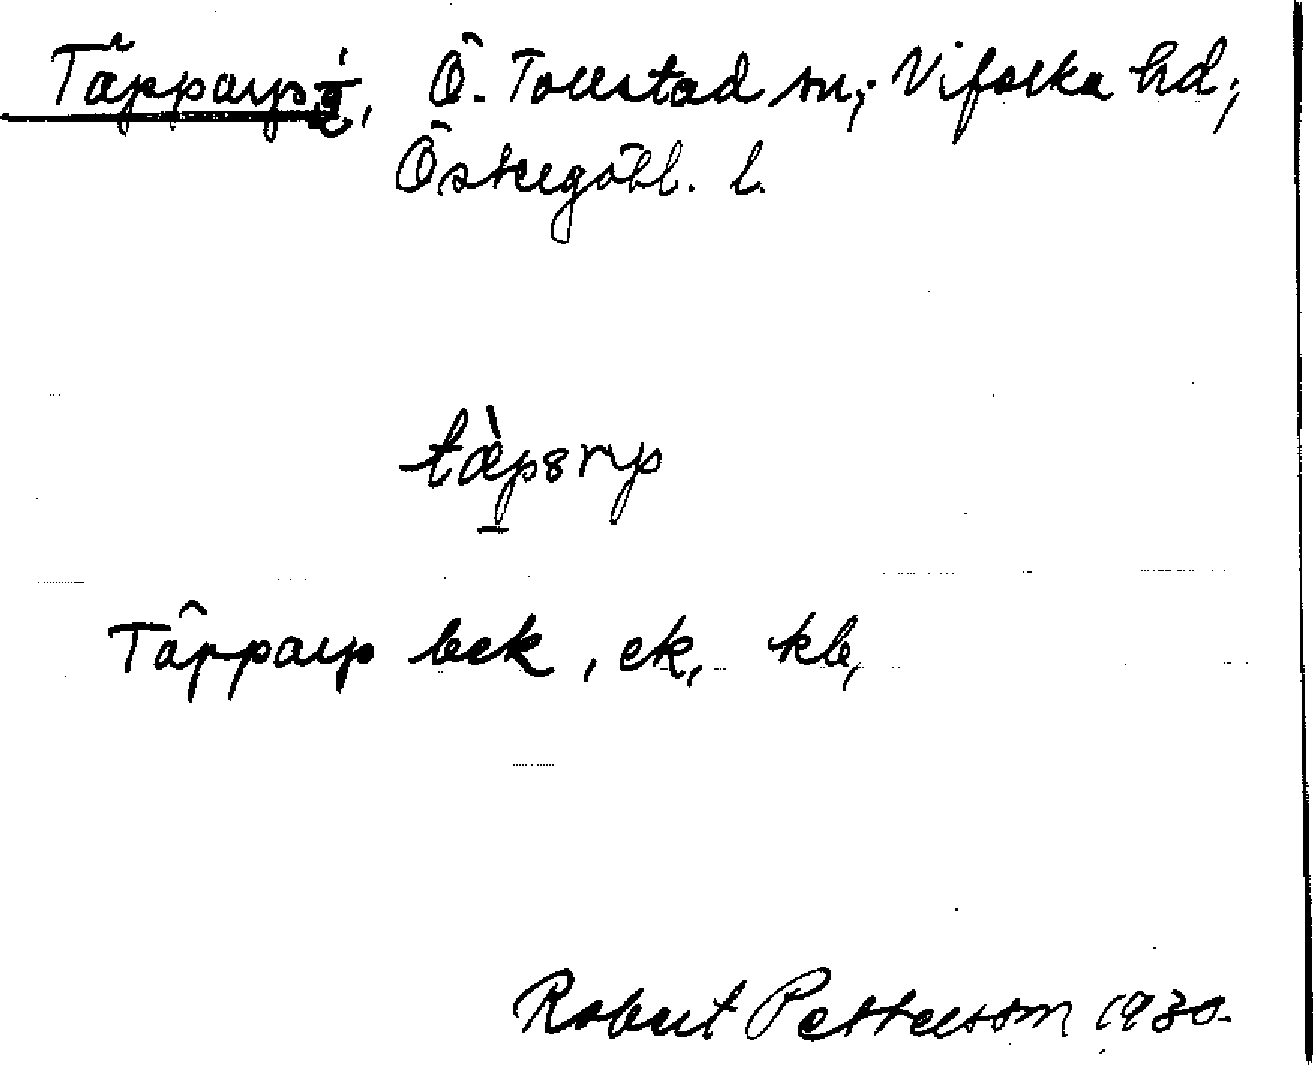 Täpparp ½, Ö. Tollstad sn; Vifolka hd;
Östergötl. l.
tæ̀psrp
Täpparp bek, ek, kb,
Robert Pettersson 1930.